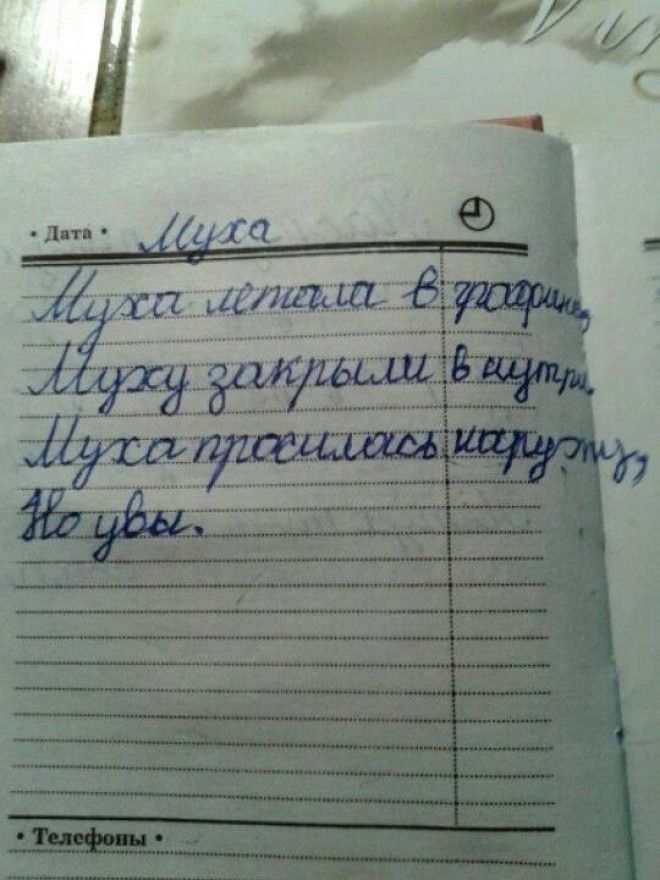 • Дата • Муха
Муха летала в графине,
Муху закрыли в нутри.
Муха просилась наружу,
Но увы.
• Телефоны •